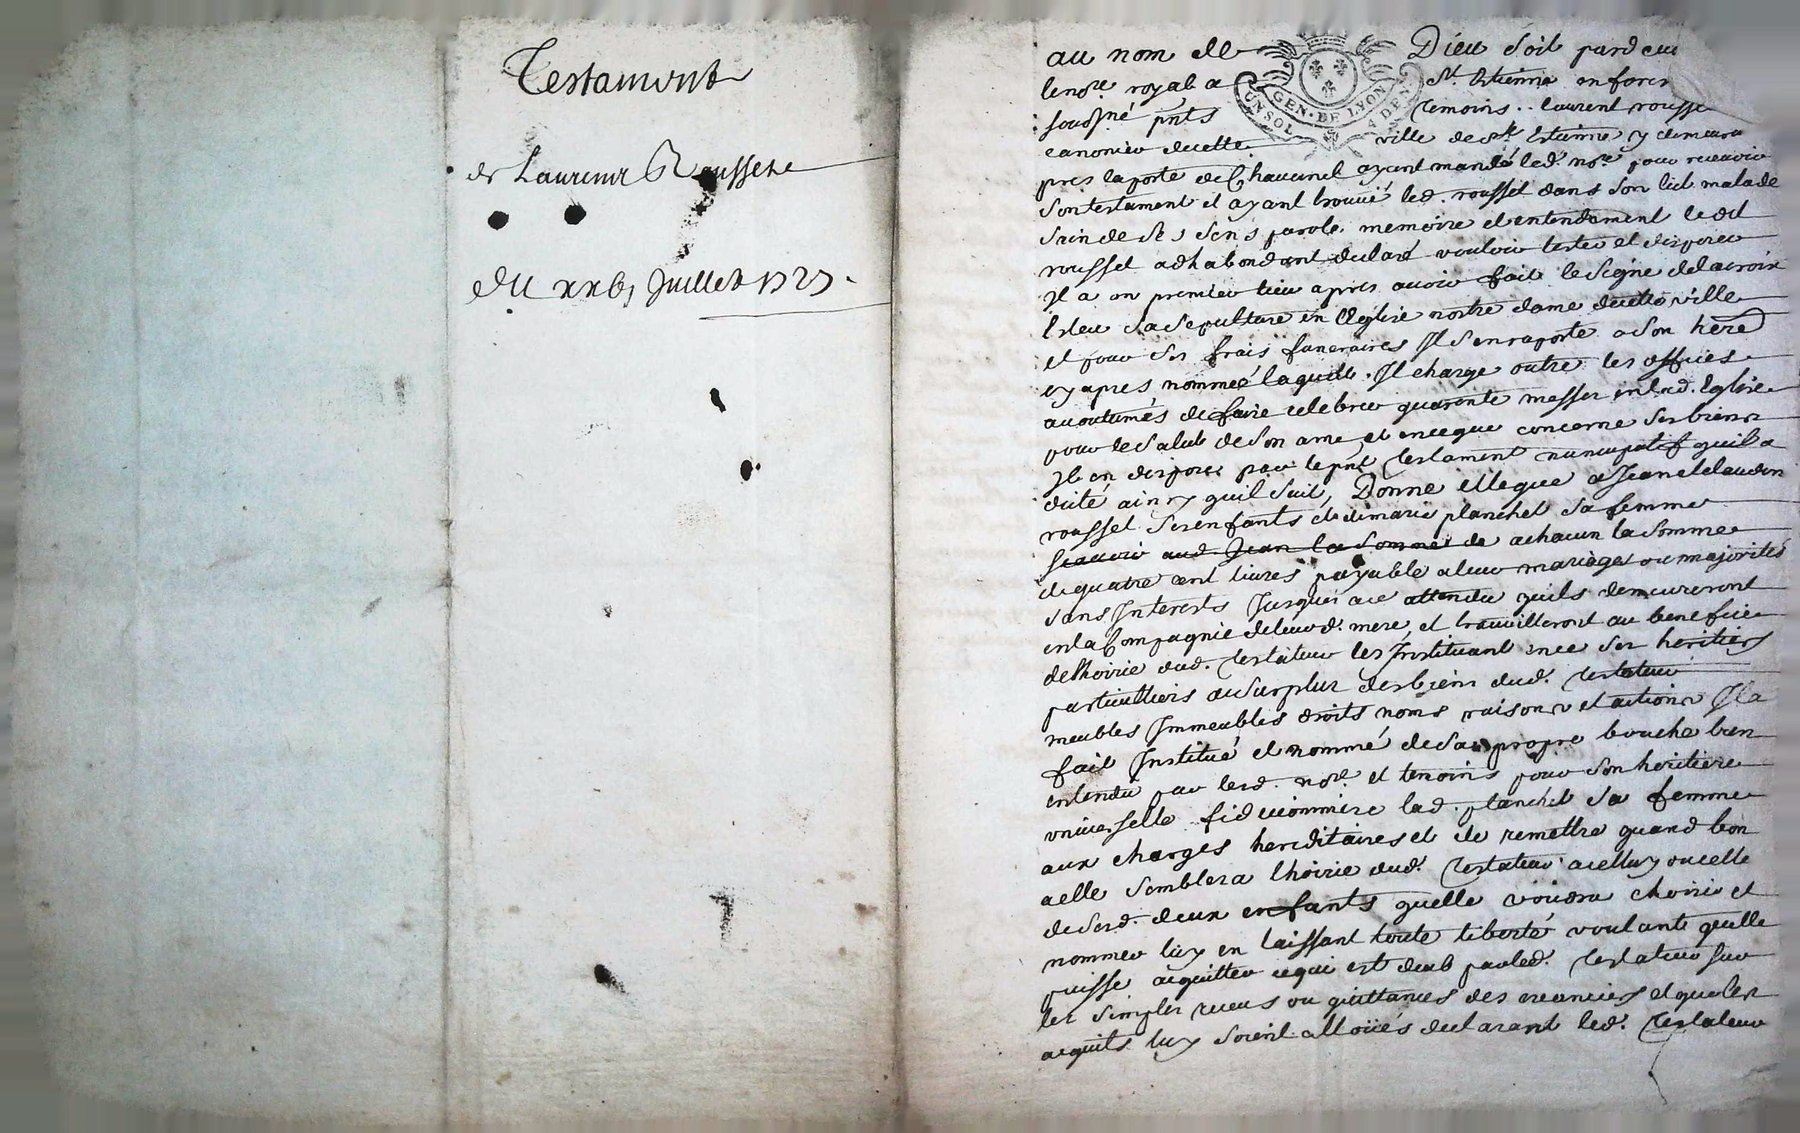 Testament
de Laurent Roussel
du xxbj Juillet 1727.
au nom de Dieu soit pardeu
le nore royal a St Estienne en forez
sousné pnts temoins .. laurent rousse
canonier de cette ville de St Estienne y demeura
pres la porte de Chavanel ayant mandé led. nore pour recevoir
son testament et ayant trouvé led. roussel dans son lict malade
sain de ses sens parole memoire et entendement le dit
roussel adhabondant declaré vouloir tester et disposer
Il a en premier lieu apres avoir fait le signe de la croix
Esleu sa sepulture en l'Eglise nostre dame de cette ville
et pour ses frais funeraires Il s'en raporte a son here
cy apres nommée laquelle Il charge outre les offices
acoutumés de faire celebrer quarente messes en lad. Eglise
pour le salut de son ame, et en ce que concerne ses biens
Il en dispose par le pnt testament nuncupatif quil a
dicté ainsy quil suit, Donne et legue a Jean et claudin
roussel ses enfants et de marie planchet sa femme
scavoir aud. Jean la somme de a chacun la somme
de quatre cent livres payable a leur mariages ou majorités
sans Interests Jusques a ce attendu quils demeureront
en la Compagnie de leurd. mere et travailleront au benefice
de lhoirie dud. testateur les Instituant en ce ses heritiers
particulliers au surplus des biens dud. testateur
meubles Immeubles droits noms raisons et actions Il a
fait Institué et nommé de sa propre bouche bien
entendu par led. nore et temoins pour son heritiere
universelle fiduciommise lad. planchet sa femme
aux charges hereditaires et de remettre quand bon
a elle semblera lhoirie dud. testateur a celluy ou celle
de sesd. deux enfants quelle voudra choisir et
nommer luy en laissant toute liberté voulant quelle
puisse acquitter ce qui est deub par led. testateur sur
les simples receus ou quittances des creanciers et que les
acquits luy soient alloüés declarant led. testateur
GEN. DE LYON
UN SOL
4 DEN